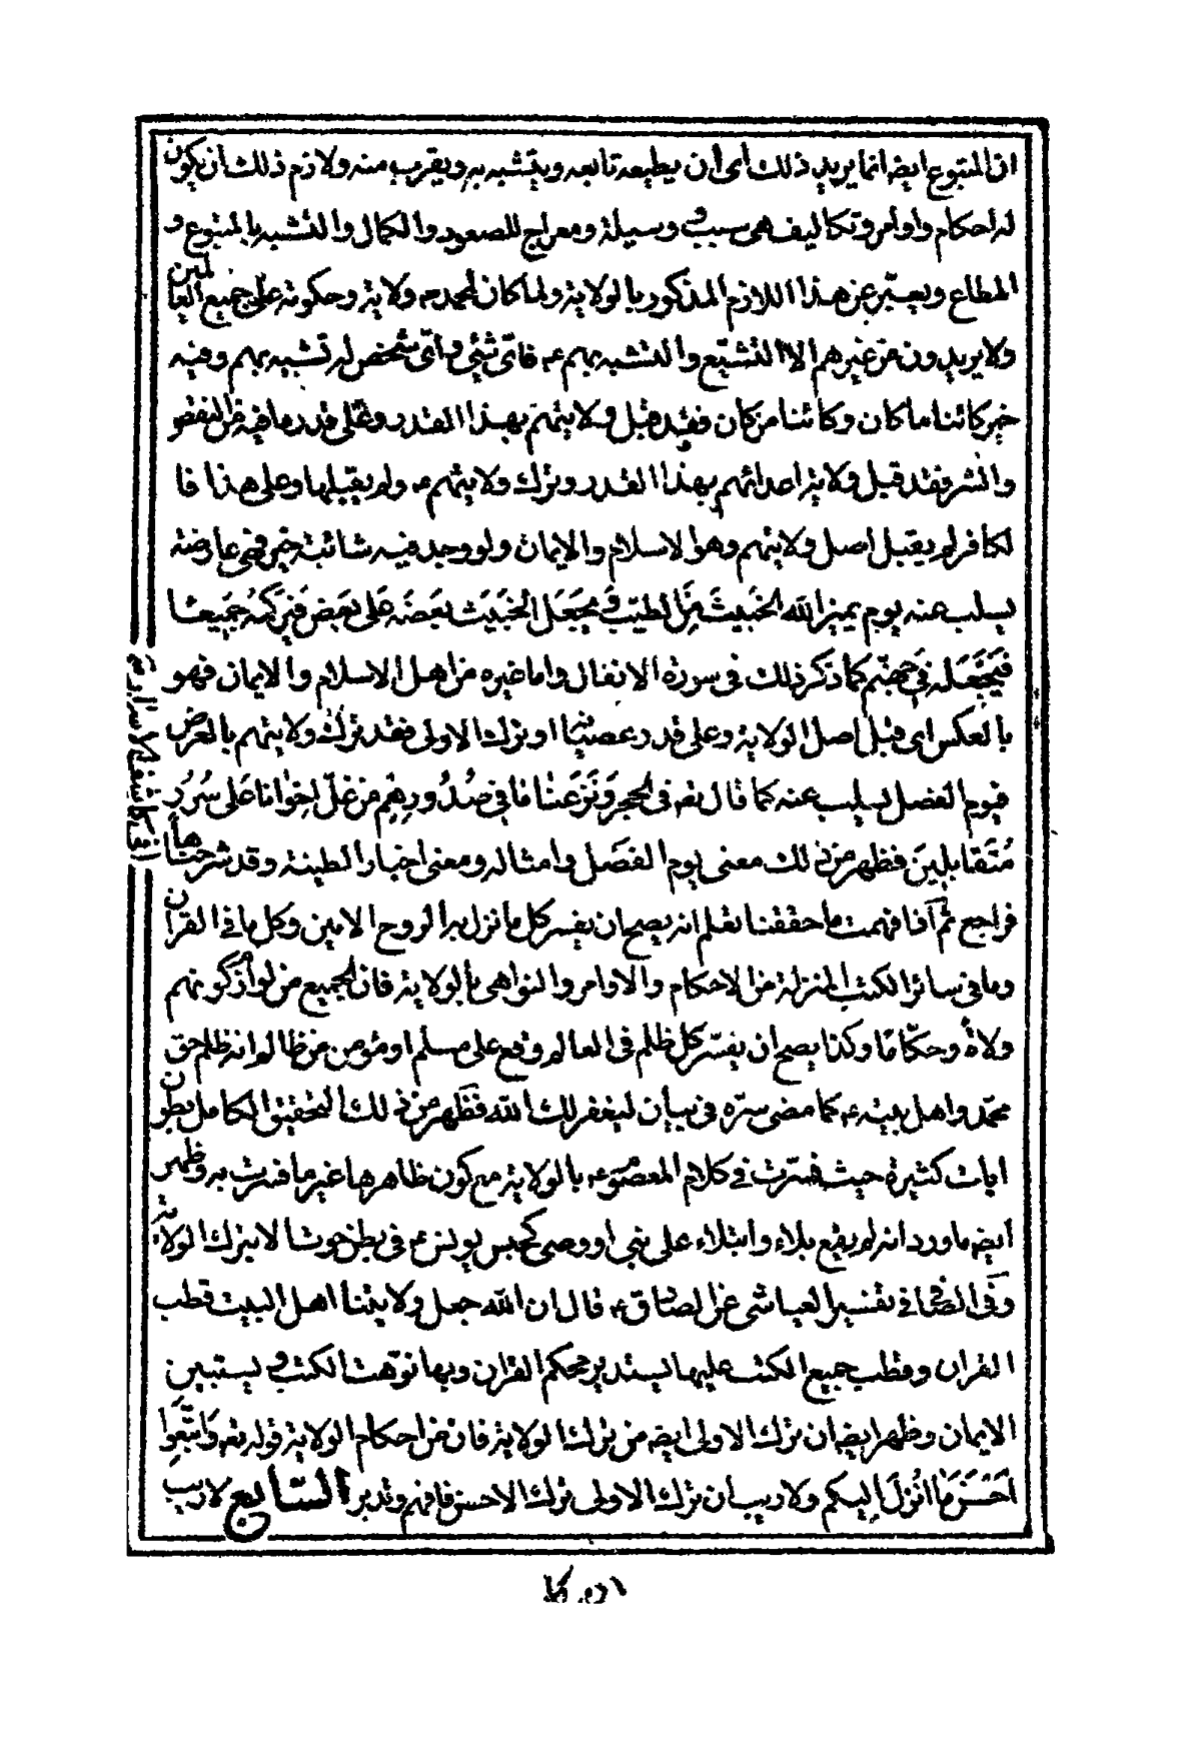 ان المتبوع ايضه انما يريد ذلك اى ان يطيعه تابعه ويتشبه به ويقرب منه ولازم ذلك ان يكون
له احكام واوامر وتكاليف هى سبب ووسيلة ومعراج للصعود والكمال والتشبه بالمتبوع و
المطاع ويعبّر عن هذا اللازم المذكور بالولاية ولما كان لمحمد ص ولاية وحكومة على جميع العالمين
ولا يريدون من غيرهم الا التشيّع والتشبه بهم ع فاىّ شئى واىّ شخص له تشبيه بهم وفيه
خير كائنا ما كان وكائنا من كان فقد قبل ولايتهم بهذا القدر وعلى قدر ما فيه من النقص
والشر فقد قبل ولاية اعدائهم بهذا القدر وترك ولايتهم ع ولم يقبلها وعلى هذا فا
لكافر لم يقبل اصل ولايتهم وهو الاسلام والايمان ولو وجد فيه شائبة خير فهى عارضة
يسلب عنه يوم يميز الله الخَبيثَ مِنَ الطيّبِ وَيَجعَلَ الخَبيثَ بَعضَهُ عَلى بَعضٍ فَيَركُمَهُ جَميعًا
فَيَجعَلَه فى جَهنّم كما ذكر ذلك فى سورة الانفال واما غيره من اهل الاسلام والايمان فهو
بالعكس اى قبل اصل الولاية وعلى قدر عصيانها او ترك الاولى فقد ترك ولايتهم بالعرض
فيوم الفصل يسلب عنه كما قال تعه فى الحجر وَنَزَعنا ما فى صُدُورِهِم مِن غِلّ اِخوانا عَلى سُرُرٍ
مُتَقابِلينَ فظهر من ذلك معنى يوم الفصل وامثاله ومعنى اخبار الطينة وقد شرحناها
فراجع ثم اذا فهمت ما حققنا تعلم انه يصح ان يفسر كل ما نزل به الروح الامين وكل ما فى القران
وما فى سائر الكتب المنزلة من الاحكام والاوامر والنواهى بالولاية فان الجميع من لوازم كونهم
ولاة وحكّاما وكذا يصح ان يفسّر كل ظلم فى العالم وقع على مسلم او مؤمن من ظالم انه ظلم حق
محمّد واهل بيته ع كما مضى سرّه فى بيان ليغفر لك الله فظهر من ذلك التحقيق الكامل بطون
ايات كثيرة حيث فسّرت فى كلام المعصوم ع بالولاية مع كون ظاهرها غير ما فسّرت به وظهر
ايضه ما ورد انه لم يقع بلاء وابتلاء على نبى او وصى كحبس يونس ع فى بطن حوت الا لترك الولاية
وفى الصافى فى تفسير العياشى عن الصادق ع قال ان الله جعل ولايتنا اهل البيت قطب
القران وقطب جميع الكتب عليها يستدير محكم القران وبها نوّهت الكتب ويستبين
الايمان وظهر ايضه ان ترك الاولى ايضه من ترك الولاية فان من احكام الولاية قوله تعه وَاتَّبِعُوا
اَحسَنَ ما اُنزِلَ اِلَيكم ولا ريب ان ترك الاولى ترك الاحسن فافهم وتدبر السّابع لا ريب